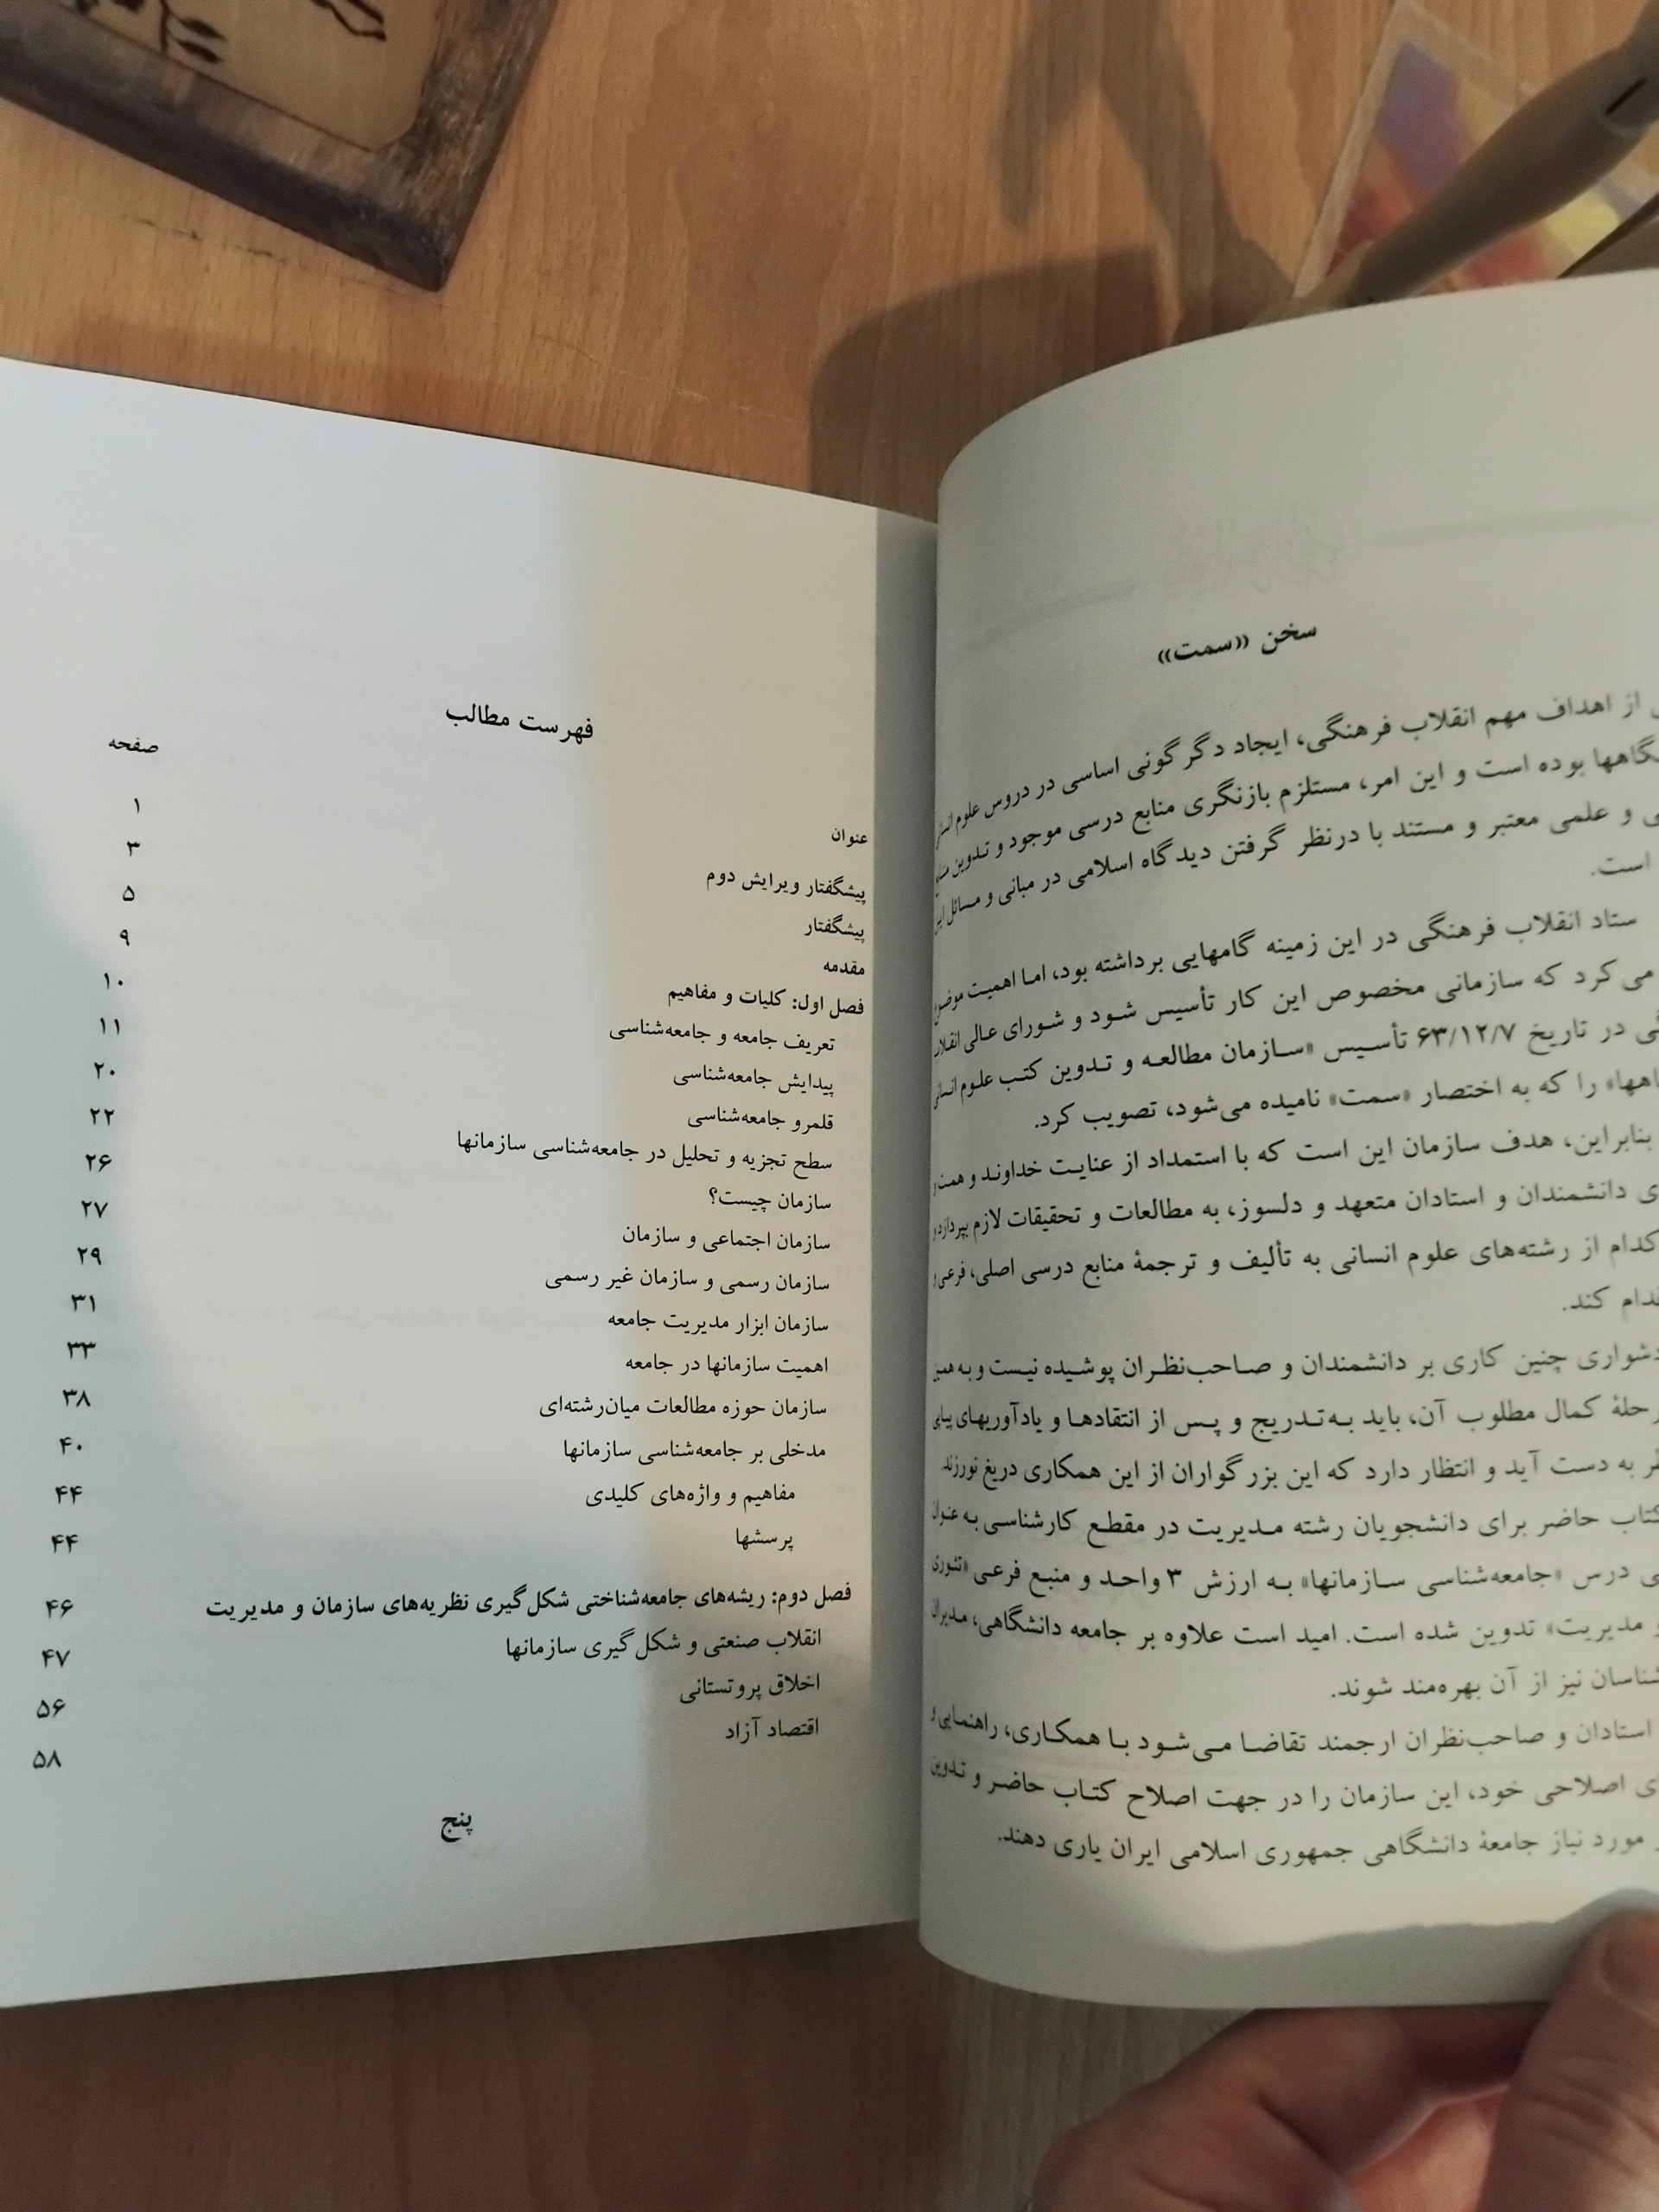 سخن «سمت»
از اهداف مهم انقلاب فرهنگی، ایجاد دگرگونی اساسی در دروس علوم
بوده است و این امر، مستلزم بازنگری منابع درسی موجود و تدوین
و علمی معتبر و مستند با درنظر گرفتن دیدگاه اسلامی در مبانی و مسائل
است.
ستاد انقلاب فرهنگی در این زمینه گامهایی برداشته بود، اما اهمیت
می‌کرد که سازمانی مخصوص این کار تأسیس شود و شورای عالی
در تاریخ ۶۳/۱۲/۷ تأسیس «سازمان مطالعه و تدوین کتب علوم
را که به اختصار «سمت» نامیده می‌شود، تصویب کرد.
بنابراین، هدف سازمان این است که با استمداد از عنایت خداوند و همت و
دانشمندان و استادان متعهد و دلسوز، به مطالعات و تحقیقات لازم بپردازد و
کدام از رشته‌های علوم انسانی به تألیف و ترجمهٔ منابع درسی اصلی، فرعی و
کند.
دشواری چنین کاری بر دانشمندان و صاحب‌نظران پوشیده نیست و به همین
کمال مطلوب آن، باید به‌تدریج و پس از انتقادها و یادآوریهای پیاپی
به دست آید و انتظار دارد که این بزرگواران از این همکاری دریغ نورزند.
کتاب حاضر برای دانشجویان رشته مدیریت در مقطع کارشناسی به عنوان
درس «جامعه‌شناسی سازمانها» به ارزش ۳ واحد و منبع فرعی «تئوری
مدیریت» تدوین شده است. امید است علاوه بر جامعه دانشگاهی، مدیران
نیز از آن بهره‌مند شوند.
استادان و صاحب‌نظران ارجمند تقاضا می‌شود با همکاری، راهنمایی و
اصلاحی خود، این سازمان را در جهت اصلاح کتاب حاضر و تدوین
مورد نیاز جامعهٔ دانشگاهی جمهوری اسلامی ایران یاری دهند.
فهرست مطالب
عنوان صفحه
پیشگفتار ویرایش دوم ۱
پیشگفتار ۳
مقدمه ۵
فصل اول: کلیات و مفاهیم ۹
تعریف جامعه و جامعه‌شناسی ۱۰
پیدایش جامعه‌شناسی ۱۱
قلمرو جامعه‌شناسی ۲۰
سطح تجزیه و تحلیل در جامعه‌شناسی سازمانها ۲۲
سازمان چیست؟ ۲۶
سازمان اجتماعی و سازمان ۲۷
سازمان رسمی و سازمان غیر رسمی ۲۹
سازمان ابزار مدیریت جامعه ۳۱
اهمیت سازمانها در جامعه ۳۳
سازمان حوزه مطالعات میان‌رشته‌ای ۳۸
مدخلی بر جامعه‌شناسی سازمانها ۴۰
مفاهیم و واژه‌های کلیدی ۴۴
پرسشها ۴۴
فصل دوم: ریشه‌های جامعه‌شناختی شکل‌گیری نظریه‌های سازمان و مدیریت ۴۶
انقلاب صنعتی و شکل‌گیری سازمانها ۴۷
اخلاق پروتستانی ۵۶
اقتصاد آزاد ۵۸
پنج